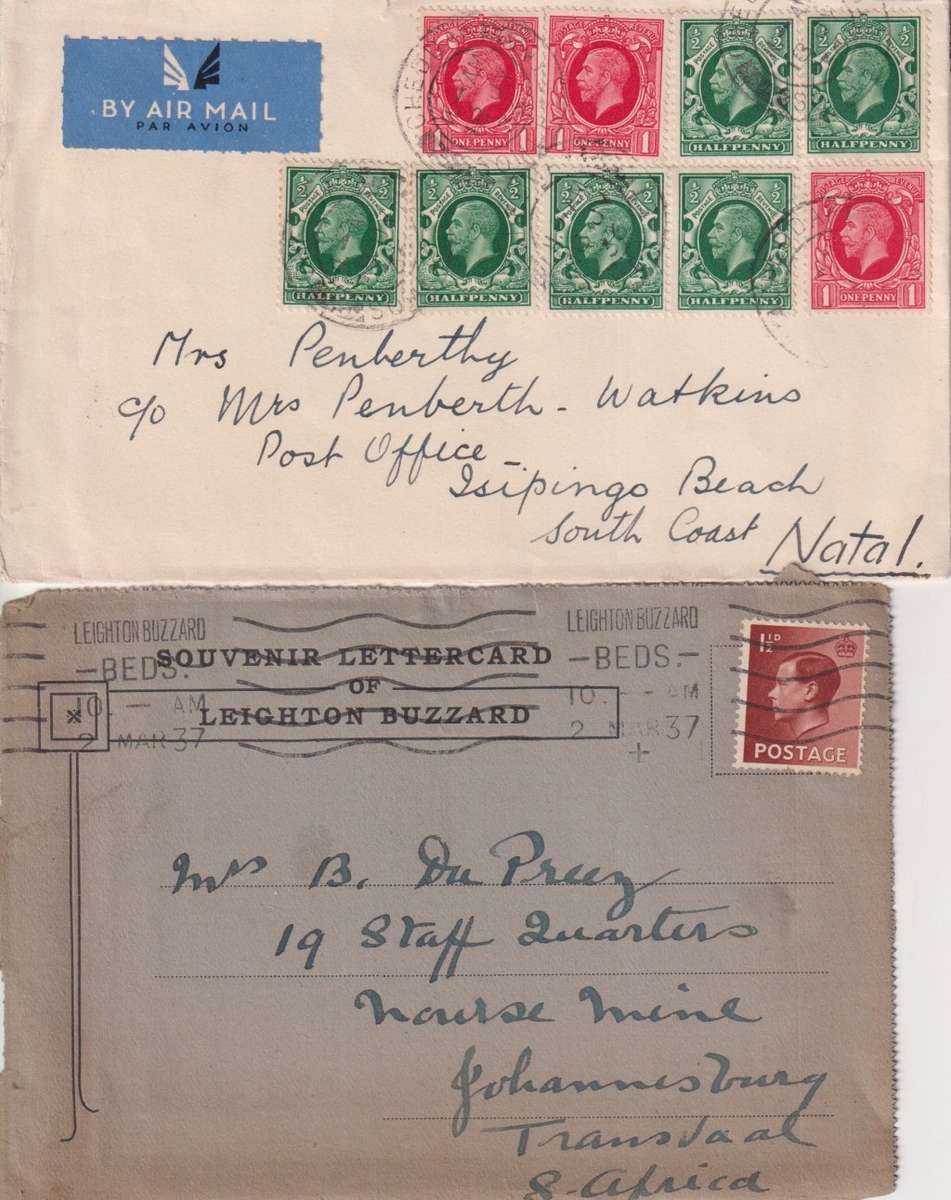 BY AIR MAIL
PAR AVION
ONE PENNY 1
ONE PENNY 1
1/2 1/2 HALFPENNY
1/2 1/2 HALFPENNY
1/2 1/2 HALFPENNY
1/2 1/2 HALFPENNY
1/2 1/2 HALFPENNY
1/2 1/2 HALFPENNY
1 ONE PENNY
Mrs Penberthy
c/o Mrs Penberth - Watkins
Post Office
Isipingo Beach
South Coast
Natal.
LEIGHTON BUZZARD
- BEDS. -
10. - AM
2 MAR 37
SOUVENIR LETTERCARD
OF
LEIGHTON BUZZARD
LEIGHTON BUZZARD
- BEDS. -
10. - AM
2 MAR 37
+
1½D
POSTAGE
Mrs B. Du Preez
19 Staff Quarters
Nourse Mine
Johannesburg
Transvaal
S. Africa